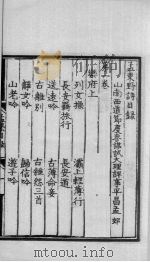 孟東野詩目錄
山南西道節度參謀試大理評事平昌孟郊
第一卷
樂府上
列女操 灞上輕薄行
長安羈旅行 長安道
送遠吟 古薄命妾
古離別 古雜怨三首
靜女吟 歸信吟
山老吟 遊子吟